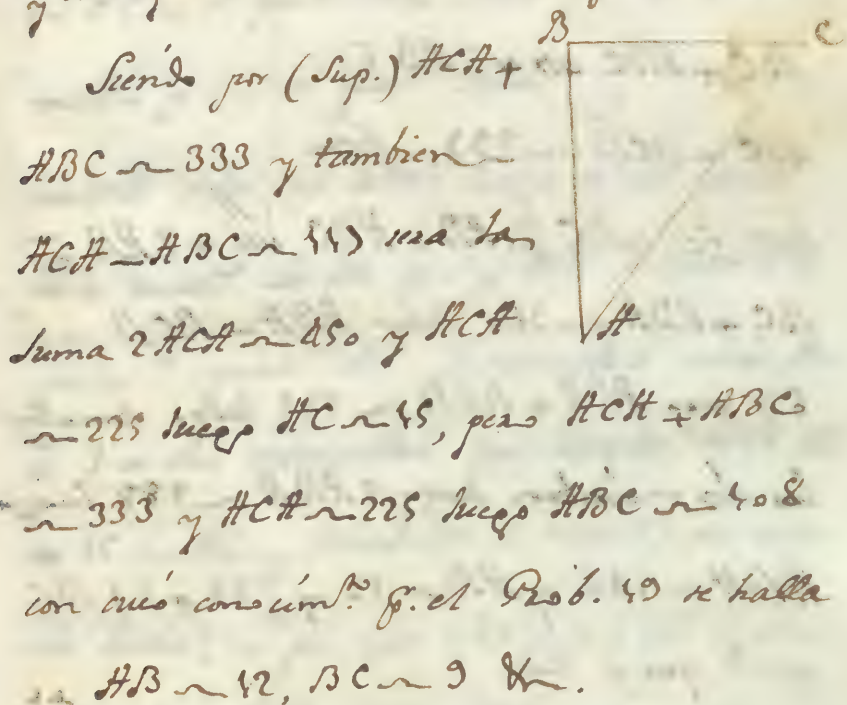 B C
Siendo por (Sup.) ACA +
ABC ~ 333 y tambien
ACA - ABC ~ 117 sera la
Suma 2 ACA ~ 450 y ACA
~ 225 luego AC ~ 15, pero ACA + ABC
~ 333 y ACA ~ 225 luego ABC ~ 108
con cuió conocim.to p.r el Prob. 19 se halla
AB ~ 12, BC ~ 9
A